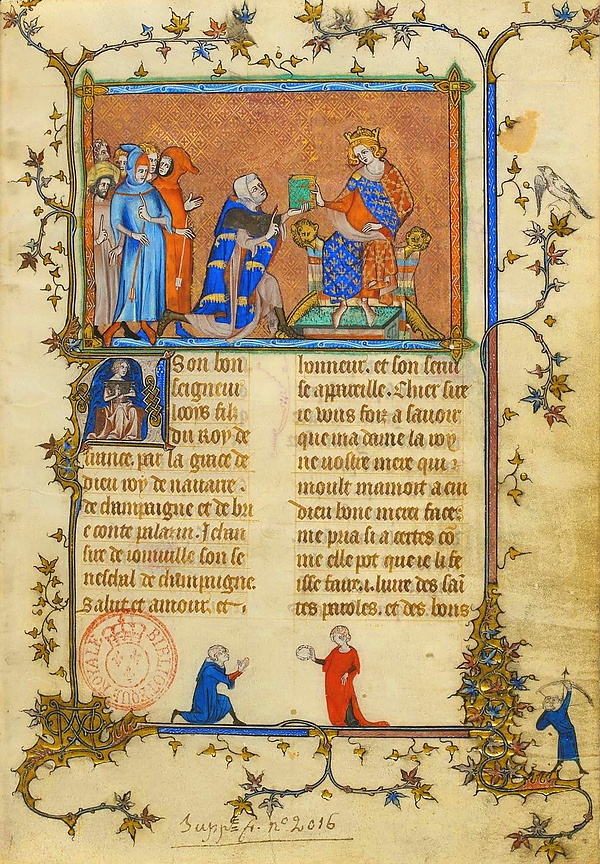 I
A Son bon
seigneur
looys filz
du Roy de
france, par la grace de
dieu roy de nauarre.
de champaigne et de bri
e conte palazin. Jehan
sire de ioinuille son se
neschal de champaigne.
Salut et amour, et
honneur. et son serui
se appareille. Chier sire
ie vous foiz a sauoir
que ma dame la roy
ne vostre mere qui
moult mamoit a cui
dieu bone merci face.
me pria si a certes cō
me elle pot que ie li fe
isse faire .i. liure des sai
tes paroles. et des bons
BIBLIOTHEQUE ROYALE
Supp. f. n° 2016